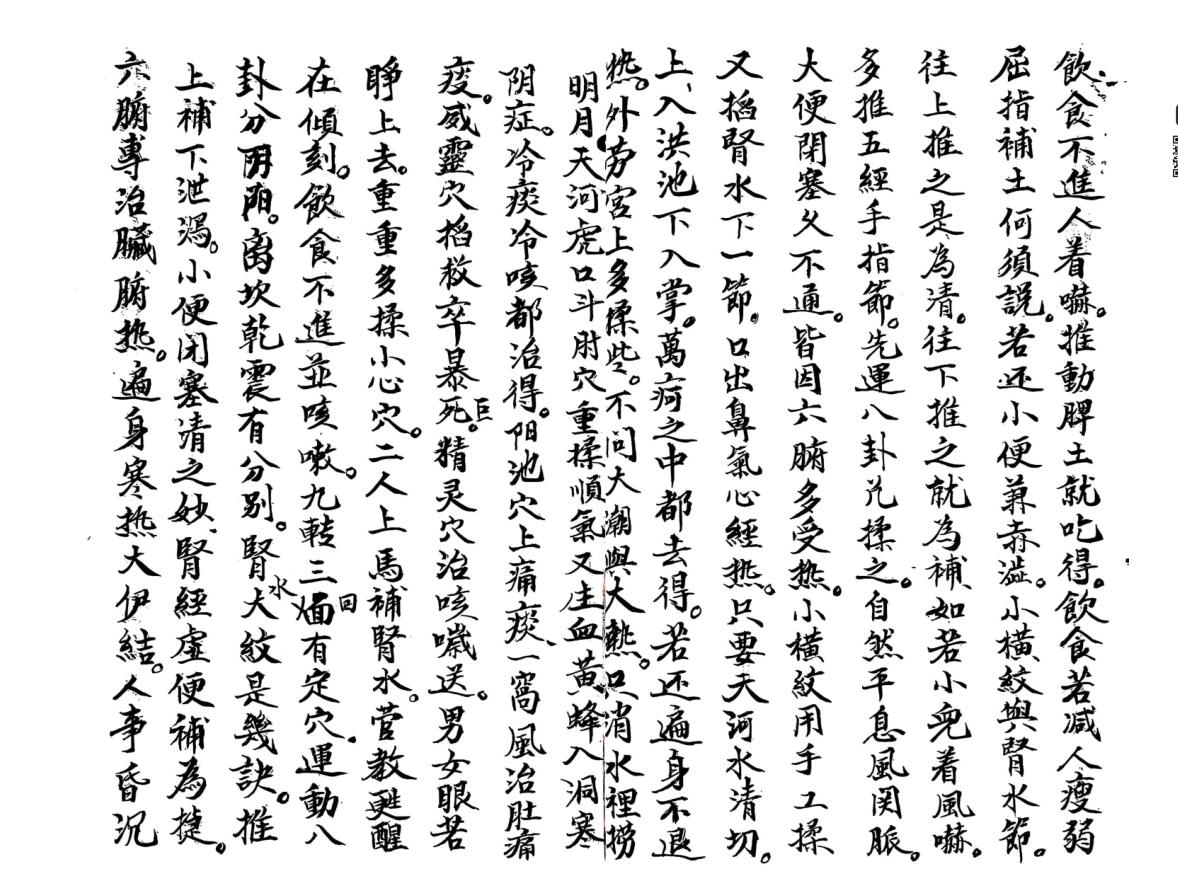 飲食不進人着嚇。推動脾土就吃得。飲食若减人瘦弱
屈指補土何須説。若还小便兼赤澁。小横紋與腎水節。
往上推之是為清。往下推之就為補、如若小兒着風嚇。
多推五經手指節。先運八卦凢揉之。自然平息風関脈。
大便閉塞久不通。皆因六腑多受热。小横紋用手工揉
又搯腎水下一節。口出鼻氣心經热。只要天河水清切。
上、入洪池下入掌。萬疴之中都去得。若还遍身不退
热。外劳宫上多揉些。不问大潮與大熱。只消水裡撈
明月。天河虎口斗肘穴重揉順氣又生血黄蜂入洞寒
阴症。冷痰冷咳都治得。阳池穴上痛痰、一窩風治肚痛
疫。威靈穴搯救卒暴死。巨精灵穴治咳噦送。男女眼若
睁上去。重重多揉小心穴。二人上馬補腎水。菅教甦醒
在傾刻。飲食不進並咳嗽。九轉三面回有定穴。運動八
卦分阴阳。离坎乾震有分别。腎水大紋是幾訣。推
上補下泄瀉。小便闭塞清之妙、腎經虚便補為捷。
六腑専治臟腑热。遍身寒热大伊結。人事昏沉